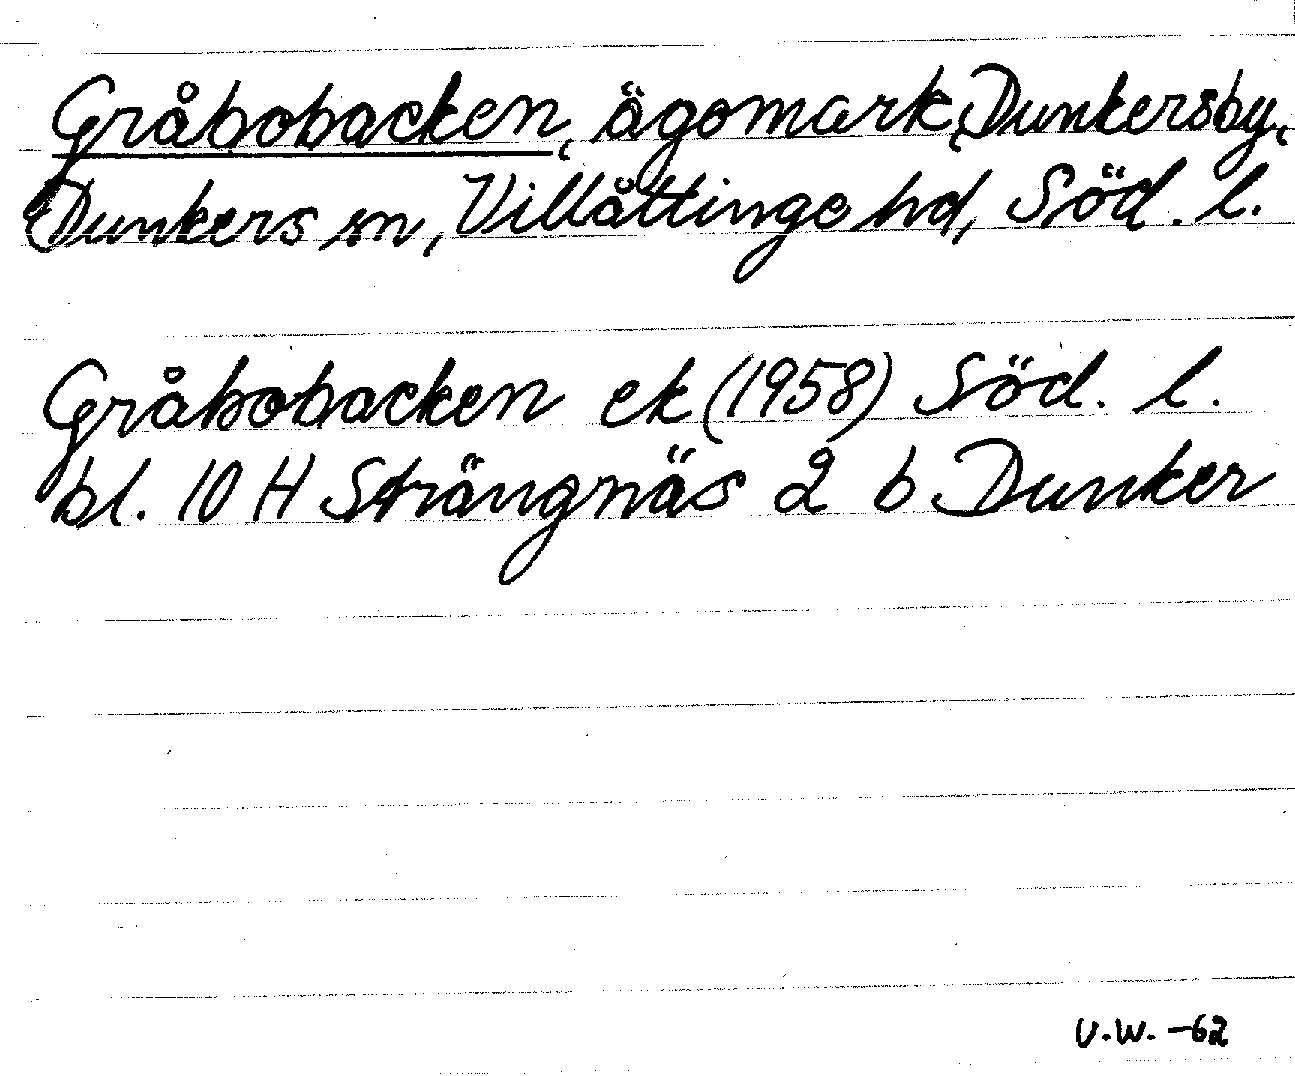 Gråbobacken, ägomark, Dunkersby,
Dunkers sn, Villåttinge hd, Söd. l.
Gråbobacken ek (1958) Söd. l.
bl. 10 H Strängnäs 2 b Dunker
U.W. -62